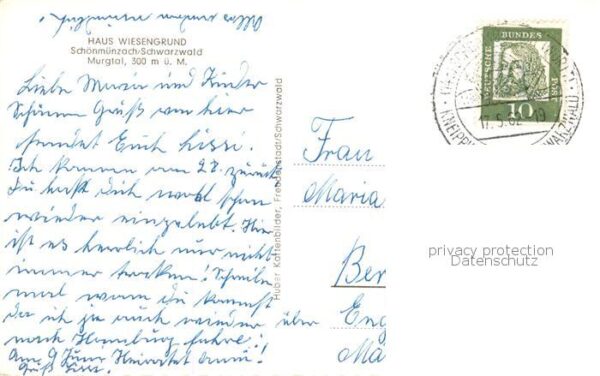 HAUS WIESENGRUND
Schönmünzach/Schwarzwald
Murgtal, 300 m ü. M.
Liebe Maria und Kinder
Schönen Gruß von hier
sendet Euch Lissi.
Ich komme am 28. zurück
Du hast dich wohl schon
wieder eingelebt. Hier
ist es herrlich nur nicht
immer trocken! Schreibe
mal wann Du kommst
da ich ja auch wieder über
nach Homburg fahre!
Am 9 Juni Heiratet
Gruß
Huber Kartenbilder, Freudenstadt/Schwarzwald
Frau
Maria
Ber
Eng
Ma
DEUTSCHE BUNDES POST
10
17.5.62-19
privacy protection
Datenschutz